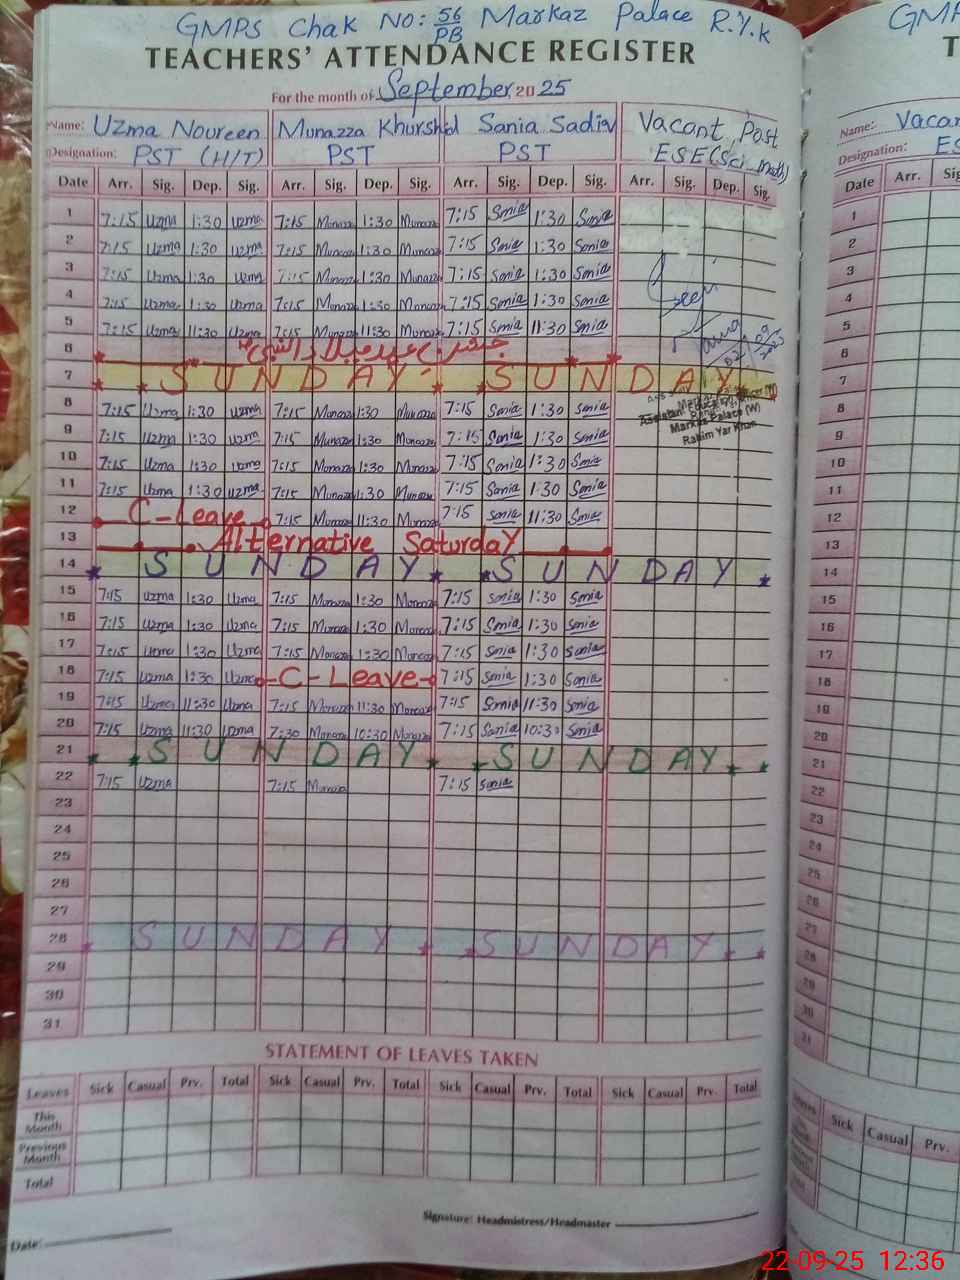 GMPS Chak NO: 56/PB Markaz Palace R.Y.k
TEACHERS' ATTENDANCE REGISTER
For the month of September, 2025
Name: Uzma Noureen Munazza Khurshid Sania Sadiq Vacant Post
Designation: PST (H/T) PST PST ESE(Sci_math)
Date Arr. Sig. Dep. Sig. Arr. Sig. Dep. Sig. Arr. Sig. Dep. Sig. Arr. Sig. Dep. Sig.
1 7:15 Uzma 1:30 Uzma 7:15 Munazza 1:30 Munazza 7:15 Sonia 1:30 Sonia
2 7:15 Uzma 1:30 Uzma 7:15 Munazza 1:30 Munazza 7:15 Sonia 1:30 Sonia
3 7:15 Uzma 1:30 Uzma 7:15 Munazza 1:30 Munazza 7:15 Sonia 1:30 Sonia
4 7:15 Uzma 1:30 Uzma 7:15 Munazza 1:30 Munazza 7:15 Sonia 1:30 Sonia
5 7:15 Uzma 11:30 Uzma 7:15 Munazza 11:30 Munazza 7:15 Sonia 11:30 Sonia
6 جشن عید میلاد النبی
7 SUNDAY SUNDAY
8 7:15 Uzma 1:30 Uzma 7:15 Munazza 1:30 Munazza 7:15 Sonia 1:30 Sonia
Markaz Palace (W)
Rahim Yar Khan
9 7:15 Uzma 1:30 Uzma 7:15 Munazza 1:30 Munazza 7:15 Sonia 1:30 Sonia
10 7:15 Uzma 1:30 Uzma 7:15 Munazza 1:30 Munazza 7:15 Sonia 1:30 Sonia
11 7:15 Uzma 1:30 Uzma 7:15 Munazza 1:30 Munazza 7:15 Sonia 1:30 Sonia
12 C-Leave 7:15 Munazza 11:30 Munazza 7:15 Sonia 11:30 Sonia
13 Alternative Saturday
14 SUNDAY SUNDAY
15 7:15 Uzma 1:30 Uzma 7:15 Munazza 1:30 Munazza 7:15 Sonia 1:30 Sonia
16 7:15 Uzma 1:30 Uzma 7:15 Munazza 1:30 Munazza 7:15 Sonia 1:30 Sonia
17 7:15 Uzma 1:30 Uzma 7:15 Munazza 1:30 Munazza 7:15 Sonia 1:30 Sonia
18 7:15 Uzma 1:30 Uzma C-Leave 7:15 Sonia 1:30 Sonia
19 7:15 Uzma 11:30 Uzma 7:15 Munazza 11:30 Munazza 7:15 Sonia 11:30 Sonia
20 7:15 Uzma 11:30 Uzma 7:30 Munazza 10:30 Munazza 7:15 Sonia 10:30 Sonia
21 SUNDAY SUNDAY
22 7:15 Uzma 7:15 Munazza 7:15 Sonia
23
24
25
26
27
28 SUNDAY SUNDAY
29
30
31
STATEMENT OF LEAVES TAKEN
Leaves Sick Casual Prv. Total Sick Casual Prv. Total Sick Casual Prv. Total Sick Casual Prv. Total
This Month
Previous Month
Total
Signature: Headmistress/Headmaster
Date:
Name:
Designation:
Date Arr.
1
2
3
4
5
6
7
8
9
10
11
12
13
14
15
16
17
18
19
20
21
22
23
24
25
26
27
28
29
30
31
Sick Casual Prv.
22-09-25 12:36